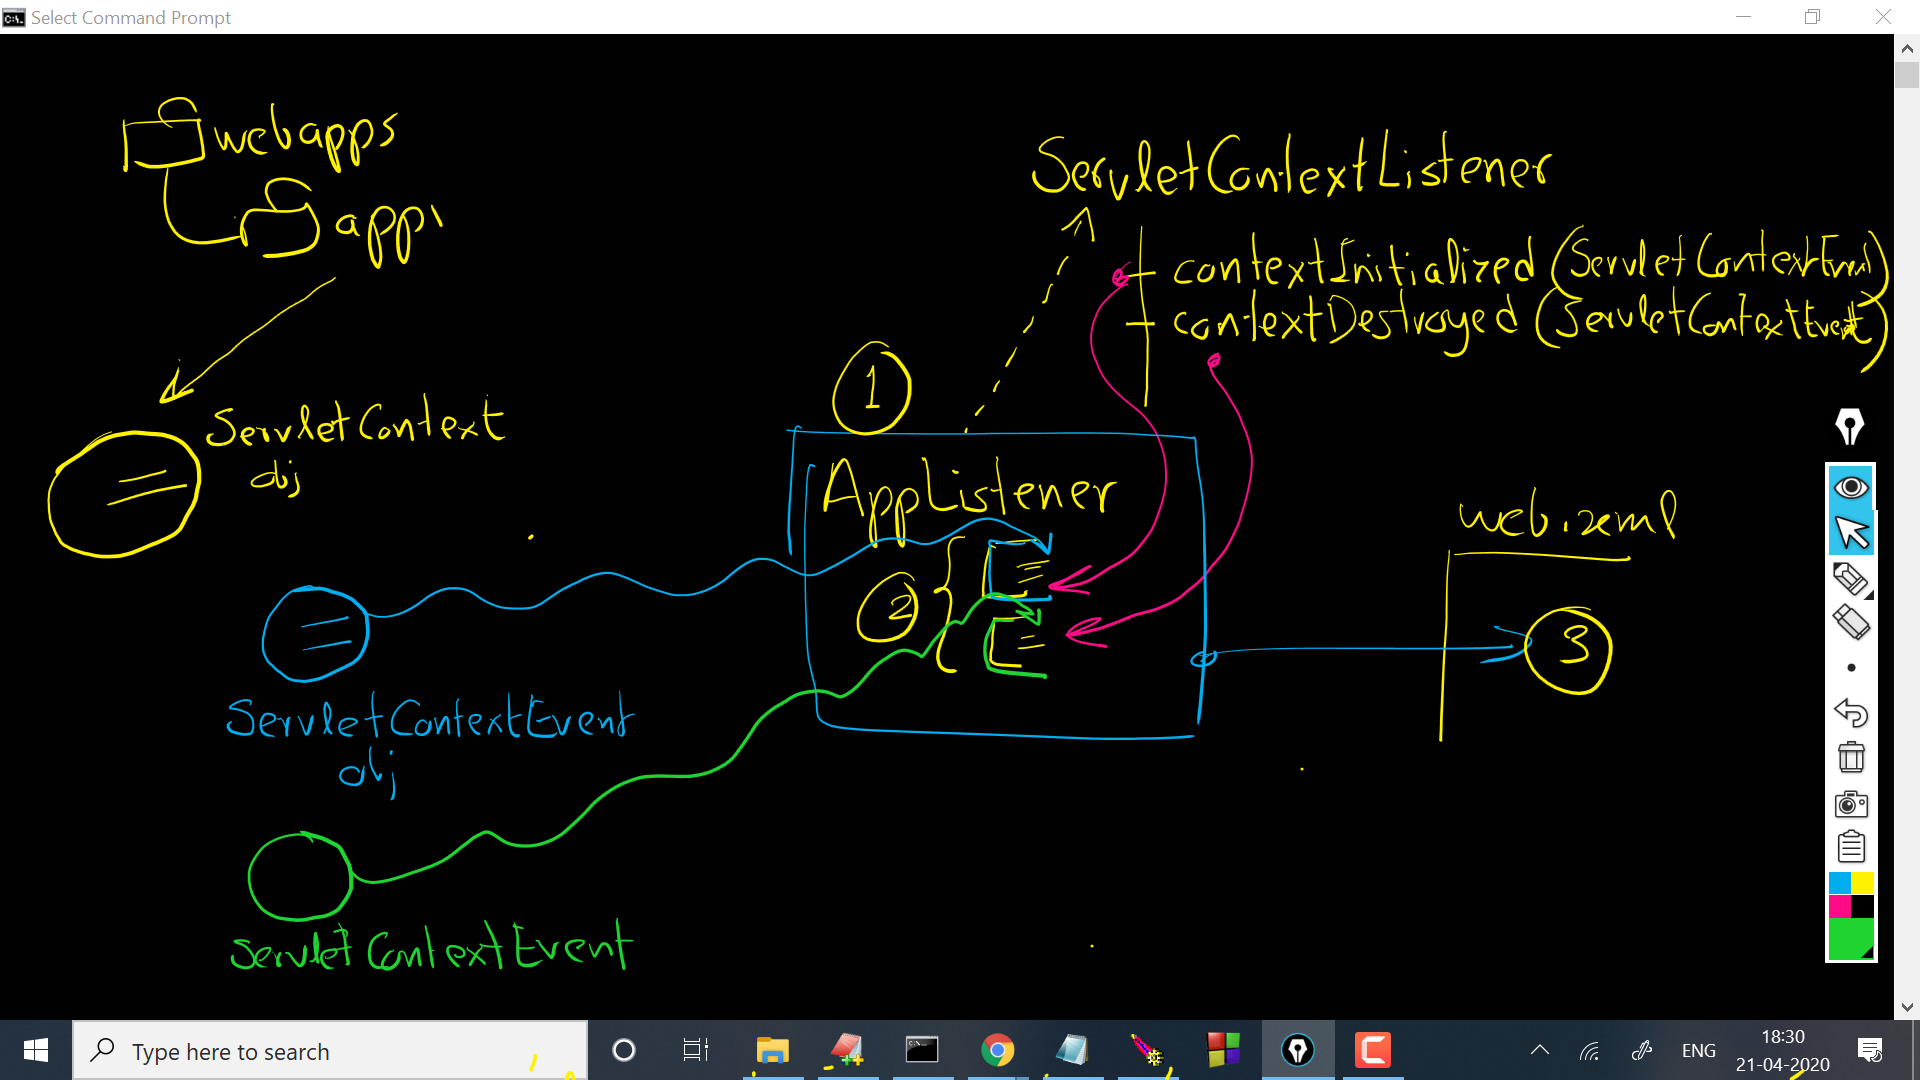 Select Command Prompt
webapps
app1
ServletContextListener
contextInitialized (ServletContextEvent)
contextDestroyed (ServletContextEvent)
1
ServletContext
obj
AppListener
web.xml
2
3
ServletContextEvent
obj
ServletContextEvent
Type here to search
ENG
18:30
21-04-2020